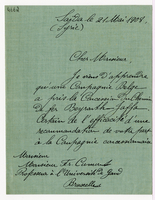 Saïda le 21 Mai 1904.
(Syrie)
Cher Monsieur,
Je viens d'apprendre
qu'une Compagnie Belge
a pris la Concession du Chemin
de fer Beyrouth-Jaffa.
Certain de l'efficacité d'une
recommandation de votre part
à la Compagnie concessionnaire
Monsieur
Monsieur Fr. Cumont
Professeur à l'Université de Gand
Bruxelles